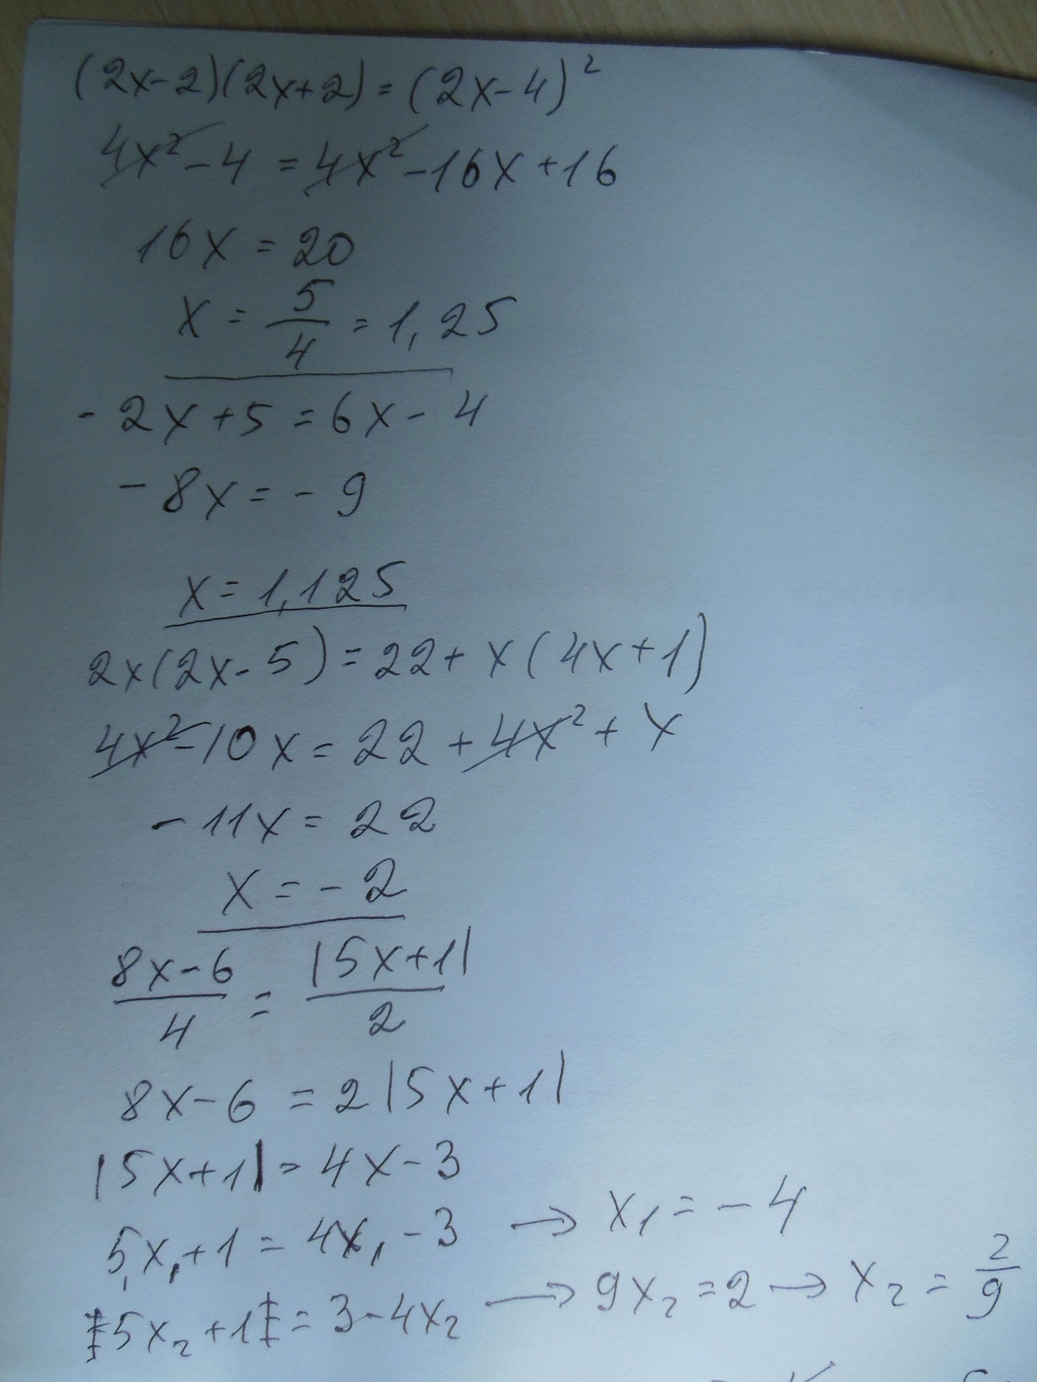 (2x-2)(2x+2)=(2x-4)²
4x²-4=4x²-16x+16
16x=20
x=5/4=1,25
-2x+5=6x-4
-8x=-9
x=1,125
2x(2x-5)=22+x(4x+1)
4x²-10x=22+4x²+x
-11x=22
x=-2
(8x-6)/4=|5x+1|/2
8x-6=2|5x+1|
|5x+1|=4x-3
5x₁+1=4x₁-3 → x₁=-4
5x₂+1=3-4x₂ → 9x₂=2 → x₂=2/9